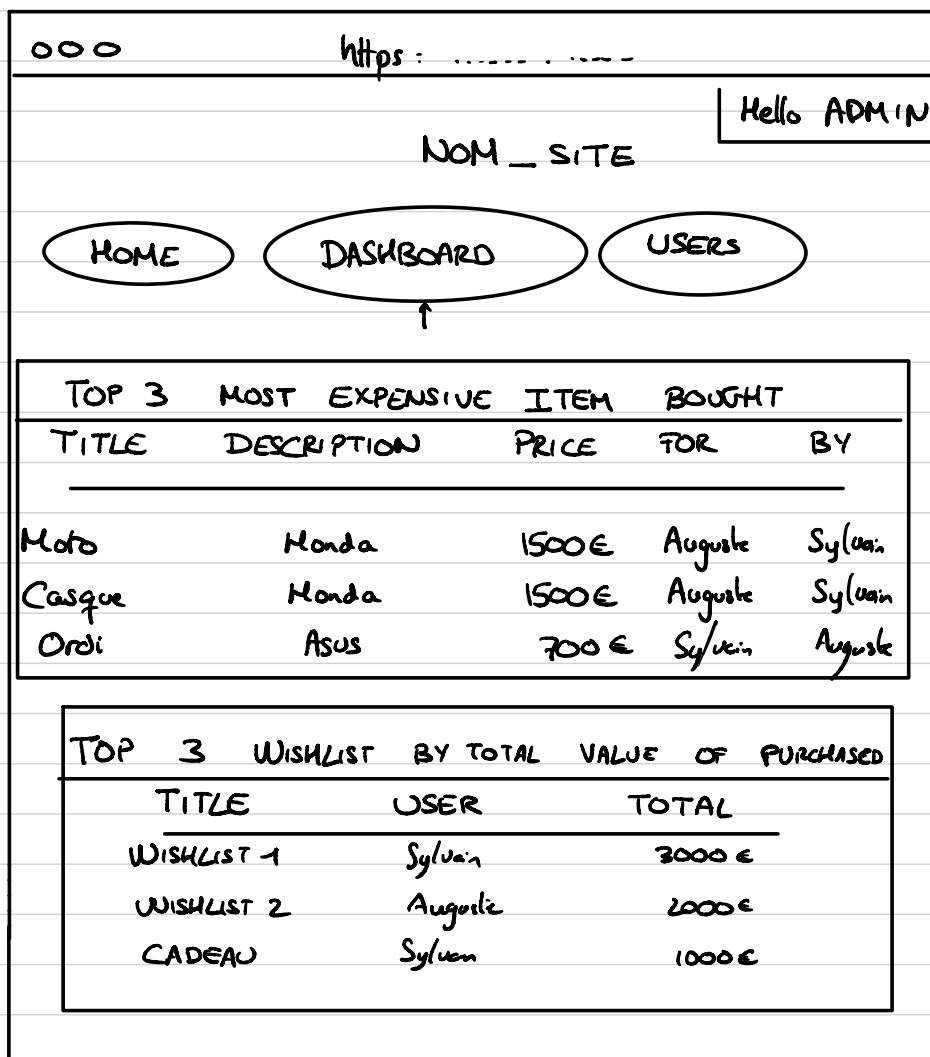 https : ...... . .....
Hello ADMIN
NOM_SITE
HOME DASHBOARD USERS
TOP 3 MOST EXPENSIVE ITEM BOUGHT
TITLE DESCRIPTION PRICE FOR BY
Moto Honda 1500€ Auguste Sylvain
Casque Honda 1500€ Auguste Sylvain
Ordi Asus 700€ Sylvain Auguste
TOP 3 WISHLIST BY TOTAL VALUE OF PURCHASED
TITLE USER TOTAL
WISHLIST 1 Sylvain 3000€
WISHLIST 2 Auguste 2000€
CADEAU Sylvain 1000€